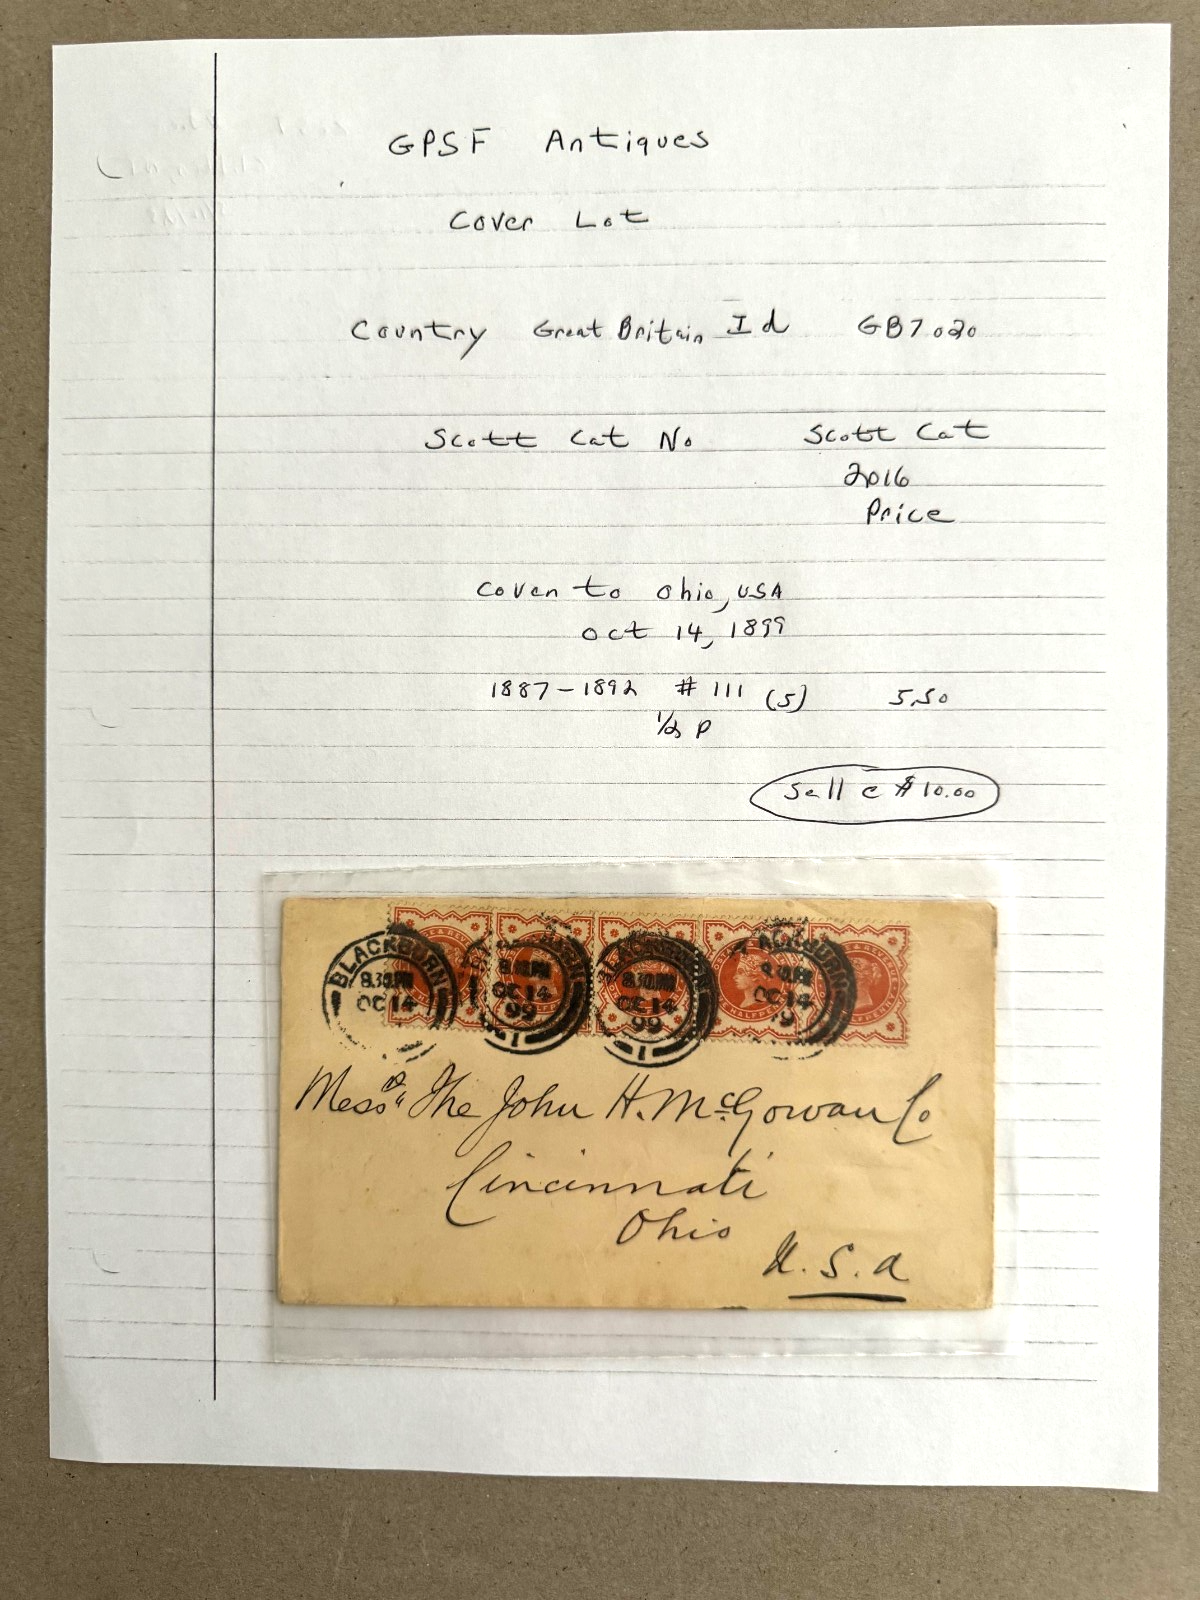 GPSF Antiques
Cover Lot
Country Great Britain Id GB7020
Scott Cat No Scott Cat
2016
Price
Cover to Ohio, USA
Oct 14, 1899
1887-1892 # 111 (5) 5.50
1/2 P
Sell @ $10.00
BLACKBURN
8.30PM
OC 14
OC 14
99
1
BLACKBURN
8.30PM
OC 14
99
1
BLACKBURN
OC 14
HALFPENNY
Messrs The John H. McGowan Co
Cincinnati
Ohio
U.S.A